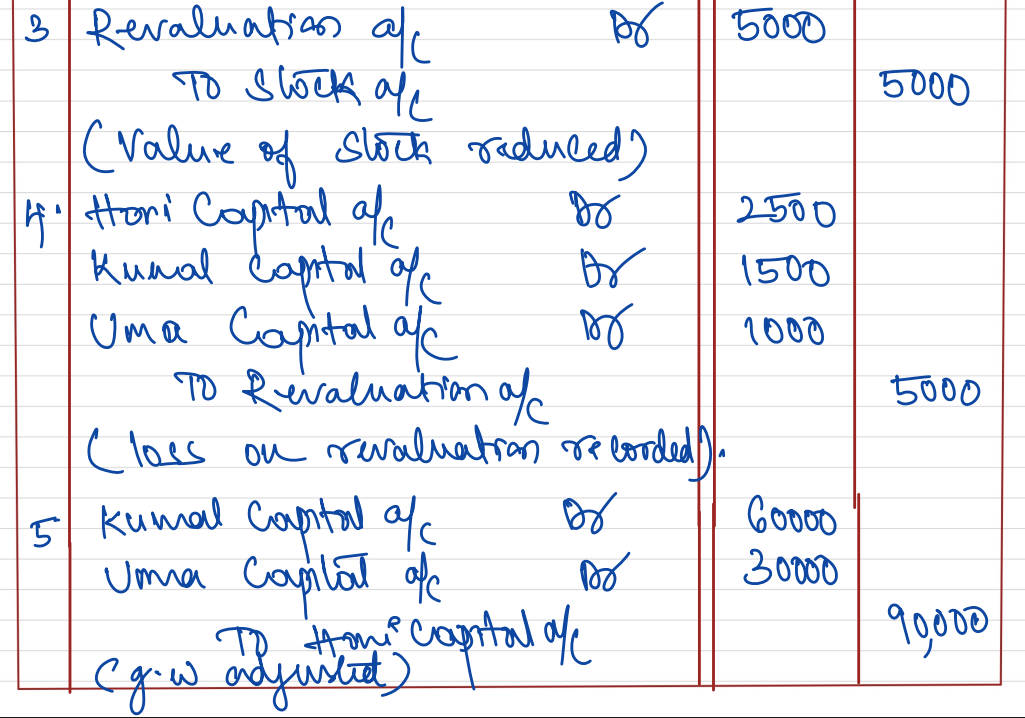 3 Revaluation a/c Dr 5000
To Stock a/c 5000
(Value of Stock reduced)
4. Hani Capital a/c Dr 2500
Kumal Capital a/c Dr 1500
Uma Capital a/c Dr 1000
To Revaluation a/c 5000
(loss on revaluation recorded).
5 Kumal Capital a/c Dr 60000
Uma Capital a/c Dr 30000
To Hani Capital a/c 90,000
(g.w adjusted)